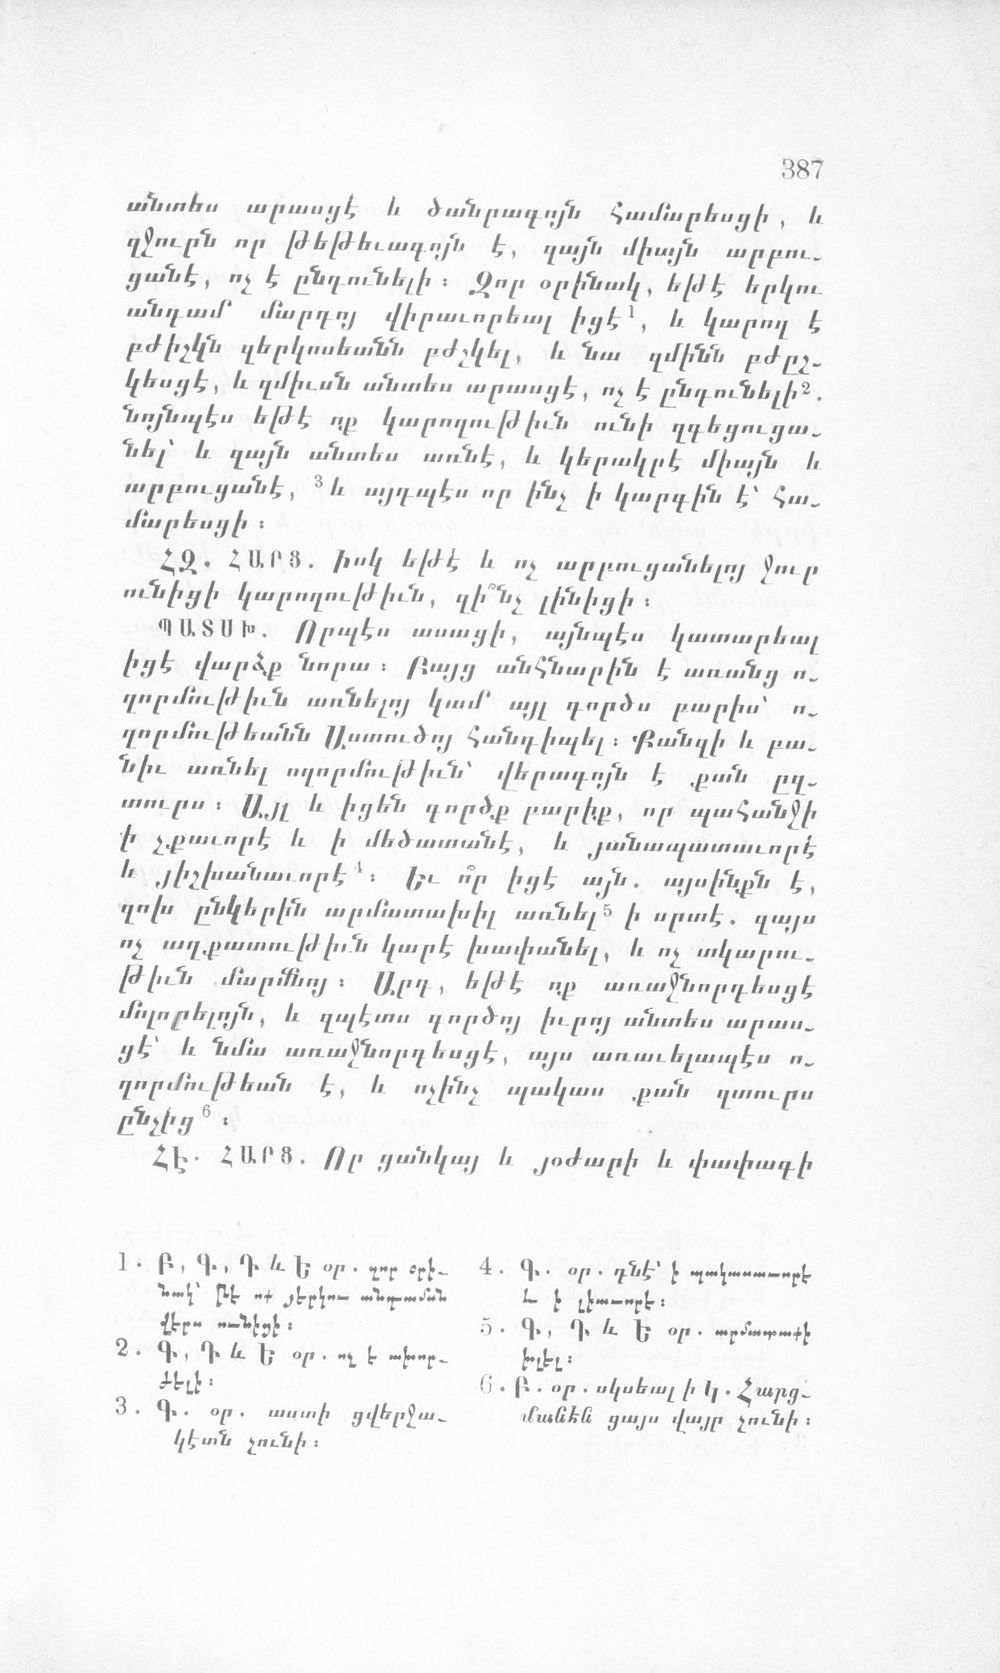 387
անտես արասցէ և ծանրագոյն համարեսցի, և
զջուրն որ թեթեւագոյն է, զայն միայն արբու-
ցանէ, ոչ է ընդունելի։ Զոր օրինակ, եթէ երկու
անդամ մարդոյ վիրաւորեալ իցէ¹, և կարող է
բժիշկն զերկոսեանն բժշկել, և նա զմինն բժըշ-
կեսցէ, և զմիւսն անտես արասցէ, ոչ է ընդունելի².
նոյնպէս եթէ ոք կարողութիւն ունի զգեցուցա-
նել՝ և զայն անտես առնէ, և կերակրէ միայն և
արբուցանէ, ³ և այդպէս որ ինչ ի կարգին է՝ հա-
մարեսցի։
ՀԶ. ՀԱՐՑ. Իսկ եթէ և ոչ արբուցանելոյ ջուր
ունիցի կարողութիւն, զի՞նչ լինիցի։
ՊԱՏՍԽ. Որպէս ասացի, այնպէս կատարեալ
իցէ վարձք նորա։ Բայց անհնարին է առանց ո-
ղորմութիւն առնելոյ կամ այլ գործս բարիս՝ ո-
ղորմութեանն Աստուծոյ հանդիպել։ Քանզի և բա-
նիւ առնել ողորմութիւն՝ վերագոյն է քան ըզ-
տուրս։ Այլ և իցեն գործք բարիք, որ պահանջի
ի չքաւորէ և ի մեծատանէ, և յանապատաւորէ
և յիշխանաւորէ⁴։ Եւ ո՞ր իցէ այն. այսինքն է,
զոխ ընկերին արմատախիլ առնել⁵ ի սրտէ. զայս
ոչ աղքատութիւն կարէ խափանել, և ոչ տկարու-
թիւն մարմնոյ։ Արդ, եթէ ոք առաջնորդեսցէ
մոլորելոյն, և զպէտս գործոյ իւրոյ անտես արաս-
ցէ՝ և նմա առաջնորդեսցէ, այս առաւելապէս ո-
ղորմութեան է, և ոչինչ պակաս քան զտուրս
ընչից⁶։
ՀԷ. ՀԱՐՑ. Որ ցանկայ և յօժարի և փափագի
1. Բ, Գ, Դ և Ե օր. զոր օրի-
նակ՝ թե ոք յերկու անդամսն
վէրս ունիցի։
2. Գ, Դ և Ե օր. ոչ է ախոր-
ժելի։
3. Գ. օր. աստի ցվերջա-
կէտն չունի։
4. Գ. օր. դնէ՝ ի պակասաւորէ
և ի լիաւորէ։
5. Գ, Դ և Ե օր. արմատախի
խլել։
6. Բ. օր. սկսեալ ի Կ. Հարց-
մանեն ցայս վայր չունի։